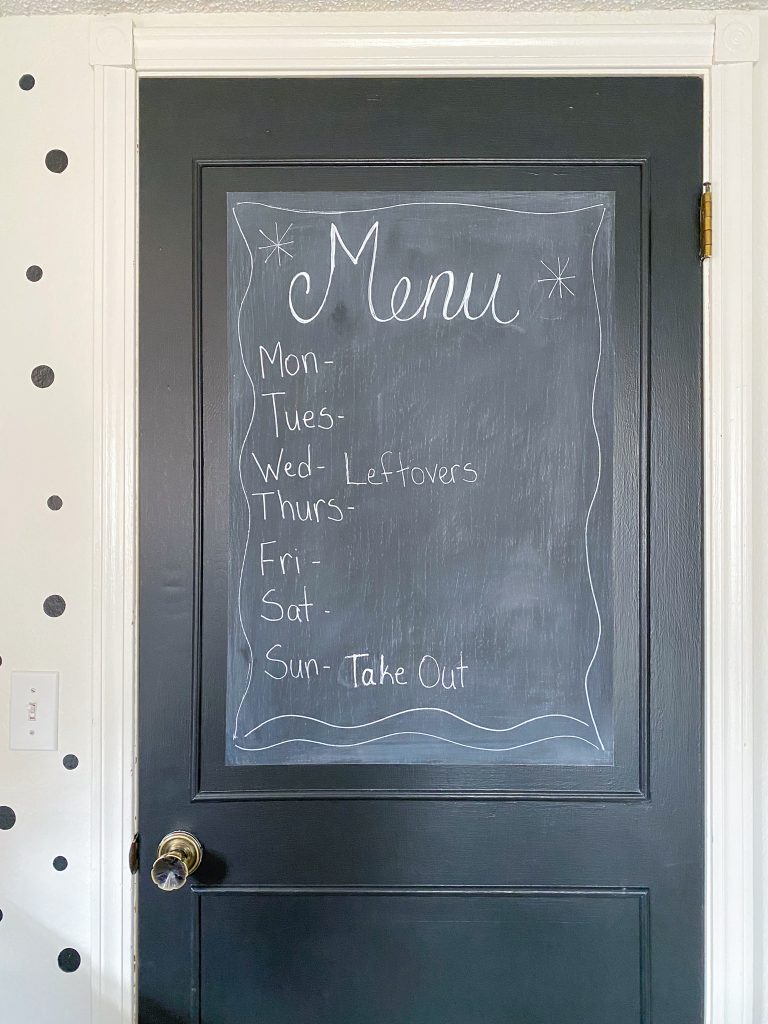 Menu
Mon-
Tues-
Wed- Leftovers
Thurs-
Fri -
Sat -
Sun- Take Out